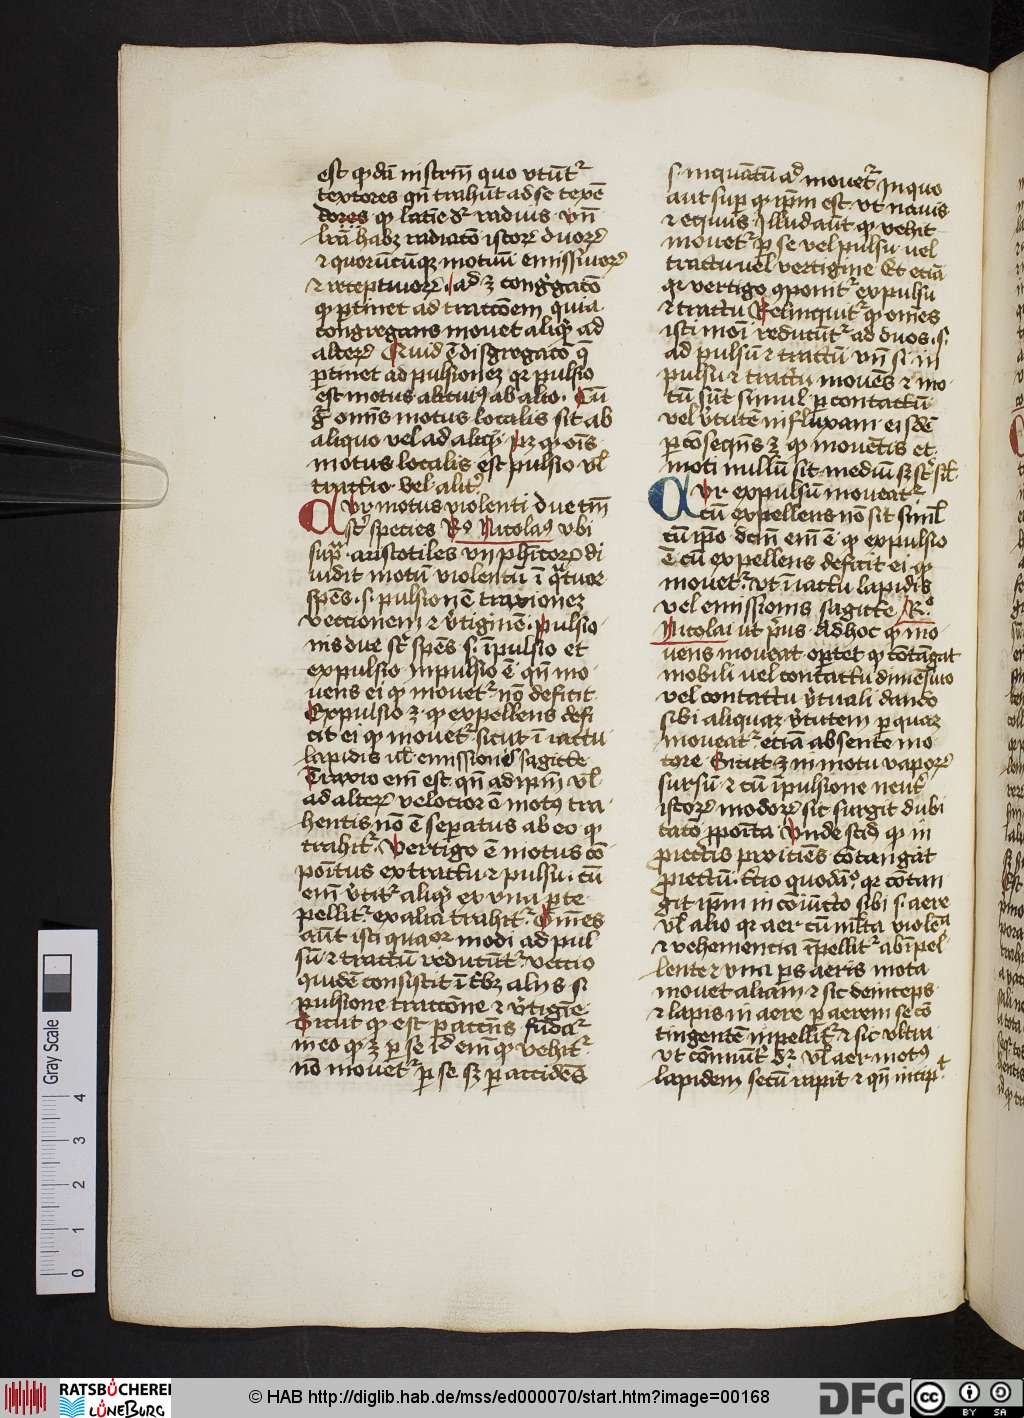 est qdā instrm̄ quo vtūtᷣ
textores qn̄ trahūt ad se texē
dores q latīe dᷣ radius vn̄
lrā habꝫ radiacō istoꝝ duoꝝ
⁊ quorūcūqꝫ motuū emissiuoꝝ
⁊ receptiuoꝝ. ad ꝫ congregacō
q ꝑtinet ad traccōem quia
congregans mouet aliqͥd ad
alteꝝ Quid ē disgregacō q̄
ꝑtinet ad pulsionez qꝛ pulsio
est motus alteriꝰ ab alto. Cū
gͦ omīs motus localis sit ab
aliquo vel ad aliqͥd pꝫ q oīs
motus localis est pulsio vl̄
tractio vel alitᷣ
Qvr motus violenti due tm̄
st̄ species Rꝰ Nicolaꝰ vbi
supᷓ aristotiles vn phīcoꝝ di
uidit motū violentū ī qᷓtuor
spēs .s. pulsionē traxionez
vectionem ⁊ vᷣtiginē. pulsio
nis due st̄ spēs .s. īpulsio et
expulsio Inpulsio ē qn̄ mo
uens ei q mouetᷣ nō deficit
Expulsio ꝫ q expellens defi
cit ei q mouetᷣ sicut ī iactu
lapidis vl̄ emissiōe sagitte
Traxio em̄ est qn̄ ad ipm̄ vl̄
ad alteꝝ velocior ē motꝰ tra
hentis nō ē seꝑatus ab eo q
trahitᷣ. Vertigo ē motus cō
poītus ex tractu ⁊ pulsu. cū
em̄ vᷣtitᷣ aliqͥd ex vna ꝑte
pellitᷣ. ex alia trahitᷣ. Om̄es
aūt isti quaͦtuor modi ad pul
sū ⁊ tractū reducūtᷣ. vectio
quidē consistit ī tͥbꝫ aliis .s.
pulsione traccōne ⁊ vᷣtigīe
Sicut q est ꝑ accn̄s fūdaᷣ
in eo q ꝫ ꝑ se id em̄ q vehitᷣ
nō mouetᷣ ꝑ se sꝫ ꝑ accidēs
.s. inquātū ad mouetᷣ In quo
aut supᷣ q ipm̄ est. vt nauis
⁊ equus. Illud aūt q vehit
mouetᷣ ꝑ se vel pulsu vel
tractu vel vertigine Et eciā
qꝛ vertigo ꝯponitᷣ ex pulsu
⁊ tractu Relinquitᷣ q om̄es
isti moī reducūtᷣ ad duos .s.
ad pulsū ⁊ tractū vn̄ .s. in
pulsu ⁊ tractu mouēs ⁊ mo
tū sūt simul ꝑ contactū
vel vᷣtutē influxam eisdē
ꝑ cōseqn̄s ꝫ q mouētis et
moti nullū sit mediū sꝫ st̄ sil̄
Qvr expulsū moueatᷣ
cū expellens nō sit siml̄
cū ipō. dcm̄ em̄ ē q expulsio
ē cū expellens deficit ei q
mouetᷣ. vt ī iactu lapidis
vel emissionis sagitte Rꝰ
Nicolai ut pͥus Ad hoc q mo
uens moueat oꝑtet q cōtāgat
mobili vel contactu dimēsiuo
vel contactu vᷣtuali dando
sibi aliquaꝫ vᷣtutem ꝑ quaꝫ
moueatᷣ eciā absente mo
tore Sicut ꝫ in motu vapoꝝ
sursū ⁊ cū īpulsione neutᷣ
istoꝝ modoꝝ sic surgit dubi
tacō ꝓpoīta Vnde sciēdū q in
ꝓiectis proiciēs cōtangāt
ꝓiectū. tͦcio quodāᵒ qꝛ cōtan
git ipm̄ in coniūcto sibi .s. aere
vl̄ alio qꝛ aer cū ml̄ta violēcia
⁊ vehemencia īpellitᷣ ab īpel
lente ⁊ vna pᷓs aeris mota
mouet aliam ⁊ sic deinceps
⁊ lapis in aere ꝑ aerem se cō
tingentē inpellitᷣ ⁊ sic vltra
vt cōmūitᷣ dᷣ. vl̄ aer motꝰ
lapidem secū rapit ⁊ qn̄ incipᷣt
Gray Scale
0 1 2 3 4
RATSBÜCHEREI
LÜNEBURG
© HAB http://diglib.hab.de/mss/ed000070/start.htm?image=00168
DFG
cc
BY SA